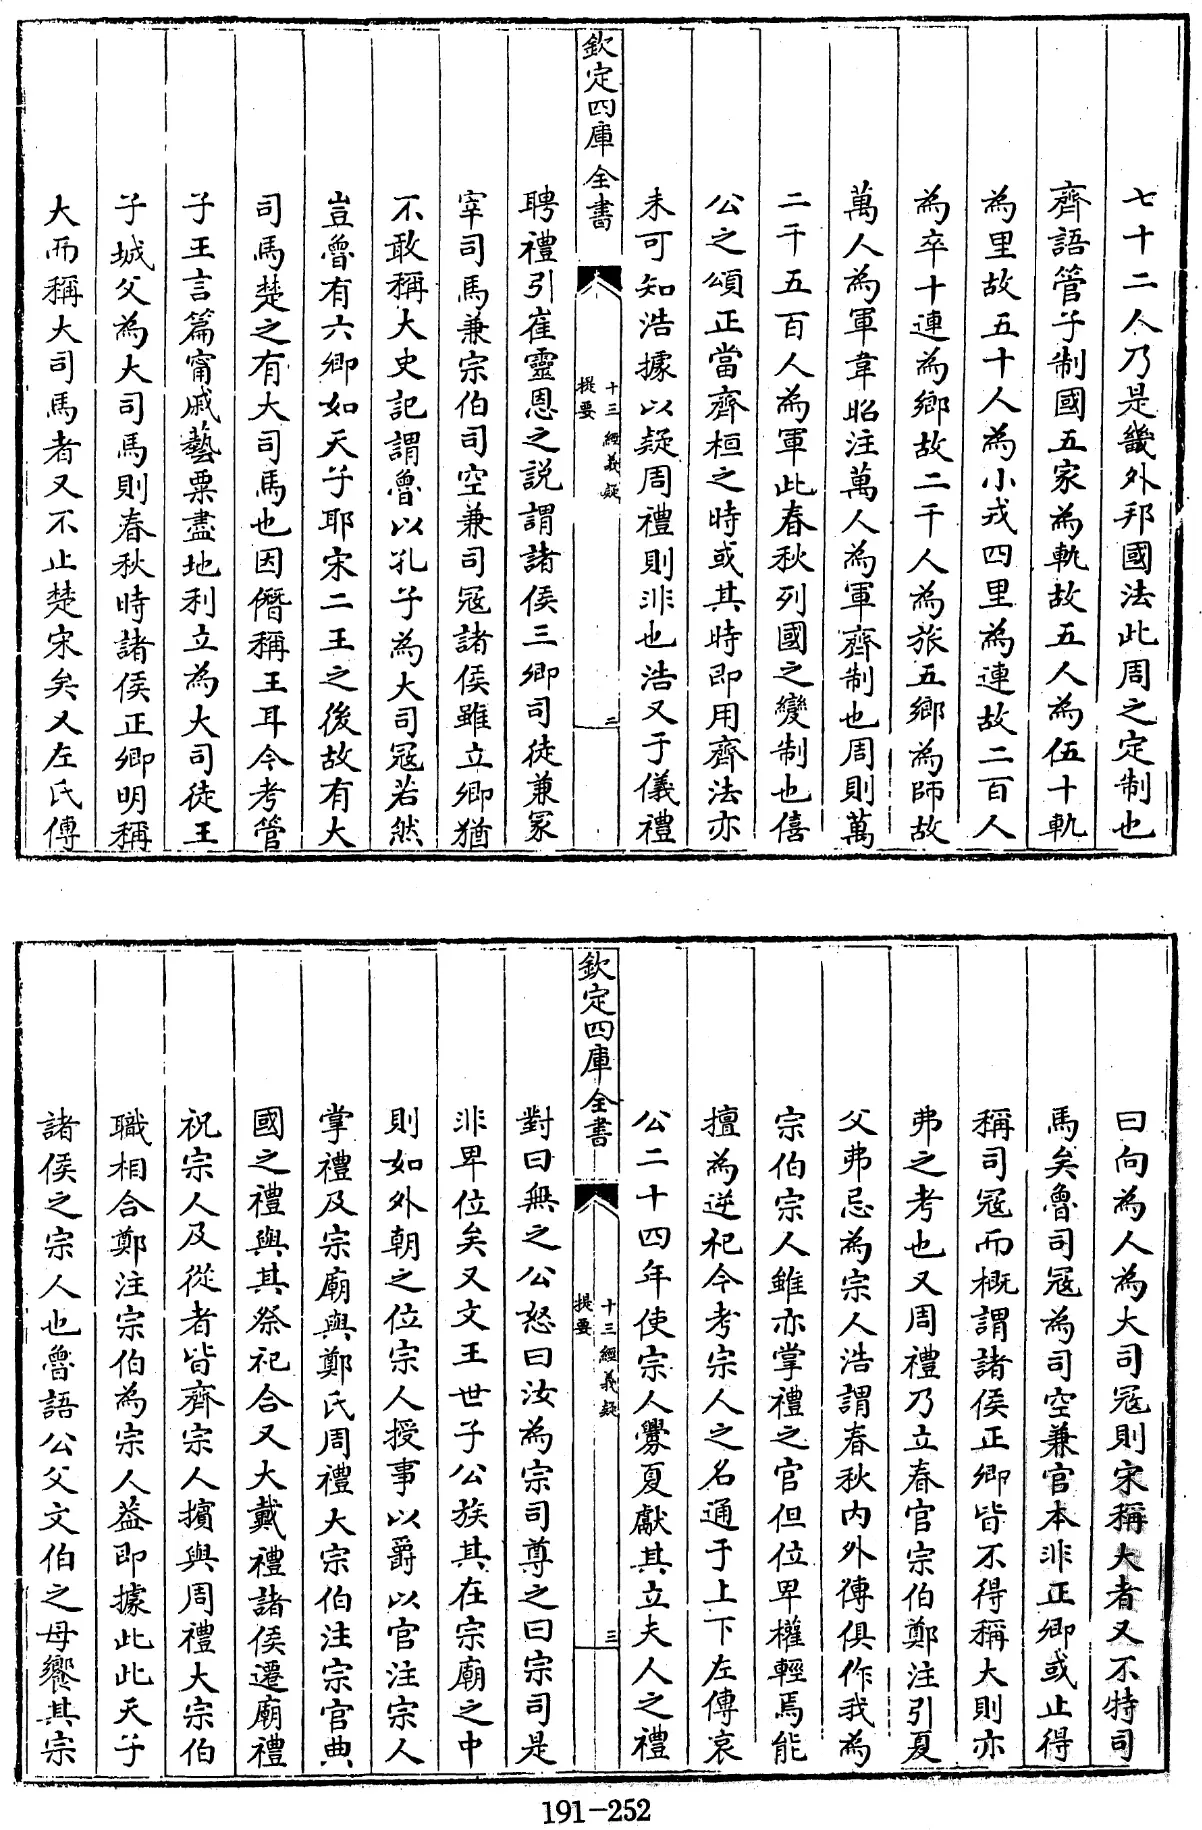 七十二人乃是畿外邦國法此周之定制也
齊語管子制國五家為軌故五人為伍十軌
為里故五十人為小戎四里為連故二百人
為卒十連為鄉故二千人為旅五鄉為師故
萬人為軍韋昭注萬人為軍齊制也周則萬
二千五百人為軍此春秋列國之變制也僖
公之頌正當齊桓之時或其時即用齊法亦
未可知浩據以疑周禮則非也浩又于儀禮
欽定四庫全書
十三經義疑
提要
二
聘禮引崔靈恩之説謂諸侯三卿司徒兼冢
宰司馬兼宗伯司空兼司冦諸侯雖立卿猶
不敢稱大史記謂魯以孔子為大司冦若然
豈魯有六卿如天子耶宋二王之後故有大
司馬楚之有大司馬也因僭稱王耳今考管
子王言篇甯戚藝粟盡地利立為大司徒王
子城父為大司馬則春秋時諸侯正卿明稱
大而稱大司馬者又不止楚宋矣又左氏傳
曰向為人為大司冦則宋稱大者又不特司
馬矣魯司冦為司空兼官本非正卿或止得
稱司冦而概謂諸侯正卿皆不得稱大則亦
弗之考也又周禮乃立春官宗伯鄭注引夏
父弗忌為宗人浩謂春秋内外傳俱作我為
宗伯宗人雖亦掌禮之官但位卑權輕焉能
擅為逆祀今考宗人之名通于上下左傳哀
公二十四年使宗人釁夏獻其立夫人之禮
欽定四庫全書
十三經義疑
提要
三
對曰無之公怒曰汝為宗司尊之曰宗司是
非卑位矣又文王世子公族其在宗廟之中
則如外朝之位宗人授事以爵以官注宗人
掌禮及宗廟與鄭氏周禮大宗伯注宗官典
國之禮與其祭祀合又大戴禮諸侯遷廟禮
祝宗人及從者皆齊宗人擯與周禮大宗伯
職相合鄭注宗伯為宗人葢即據此此天子
諸侯之宗人也魯語公父文伯之母饗其宗
191-252